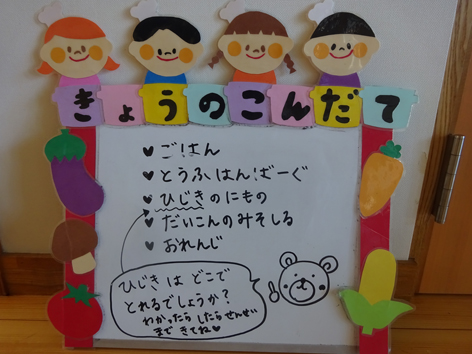 きょうのこんだて
♥ ごはん
♥ とうふはんばーぐ
♥ ひじきのにもの
♥ だいこんのみそしる
♥ おれんじ
ひじきは どこで
とれるでしょうか?
わかったら したら せんせい
まで きてね♥